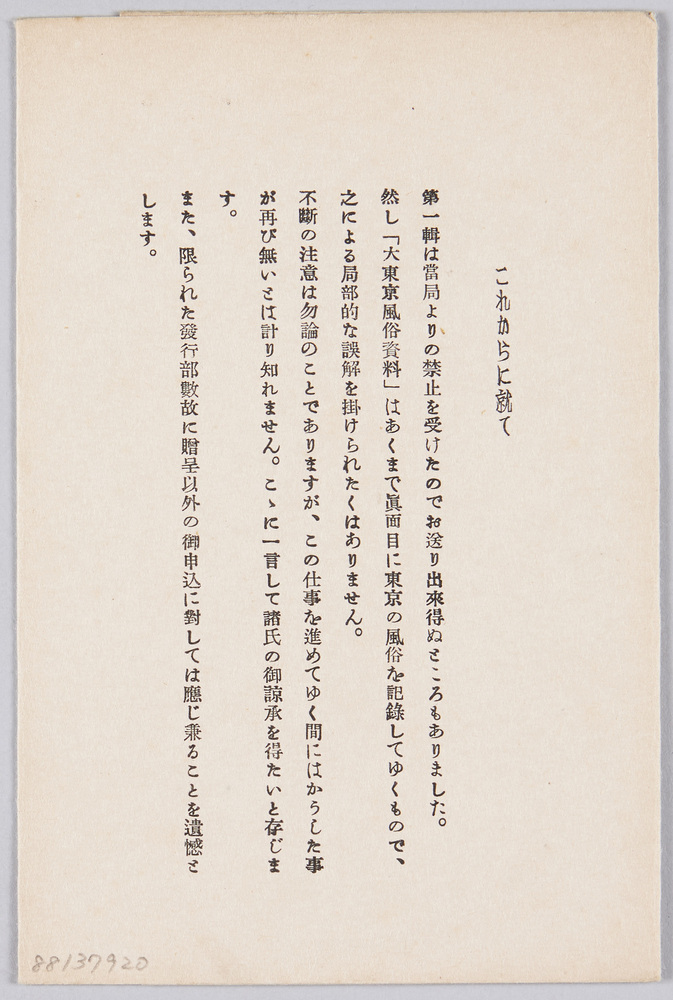 これからに就て
第一輯は當局よりの禁止を受けたのでお送り出來得ぬところもありました。
然し「大東京風俗資料」はあくまで眞面目に東京の風俗を記錄してゆくもので、
之による局部的な誤解を掛けられたくはありません。
不斷の注意は勿論のことでありますが、この仕事を進めてゆく間にはかうした事
が再び無いとは計り知れません。こゝに一言して諸氏の御諒承を得たいと存じま
す。
また、限られた發行部數故に贈呈以外の御申込に對しては應じ兼ることを遺憾と
します。
88137920